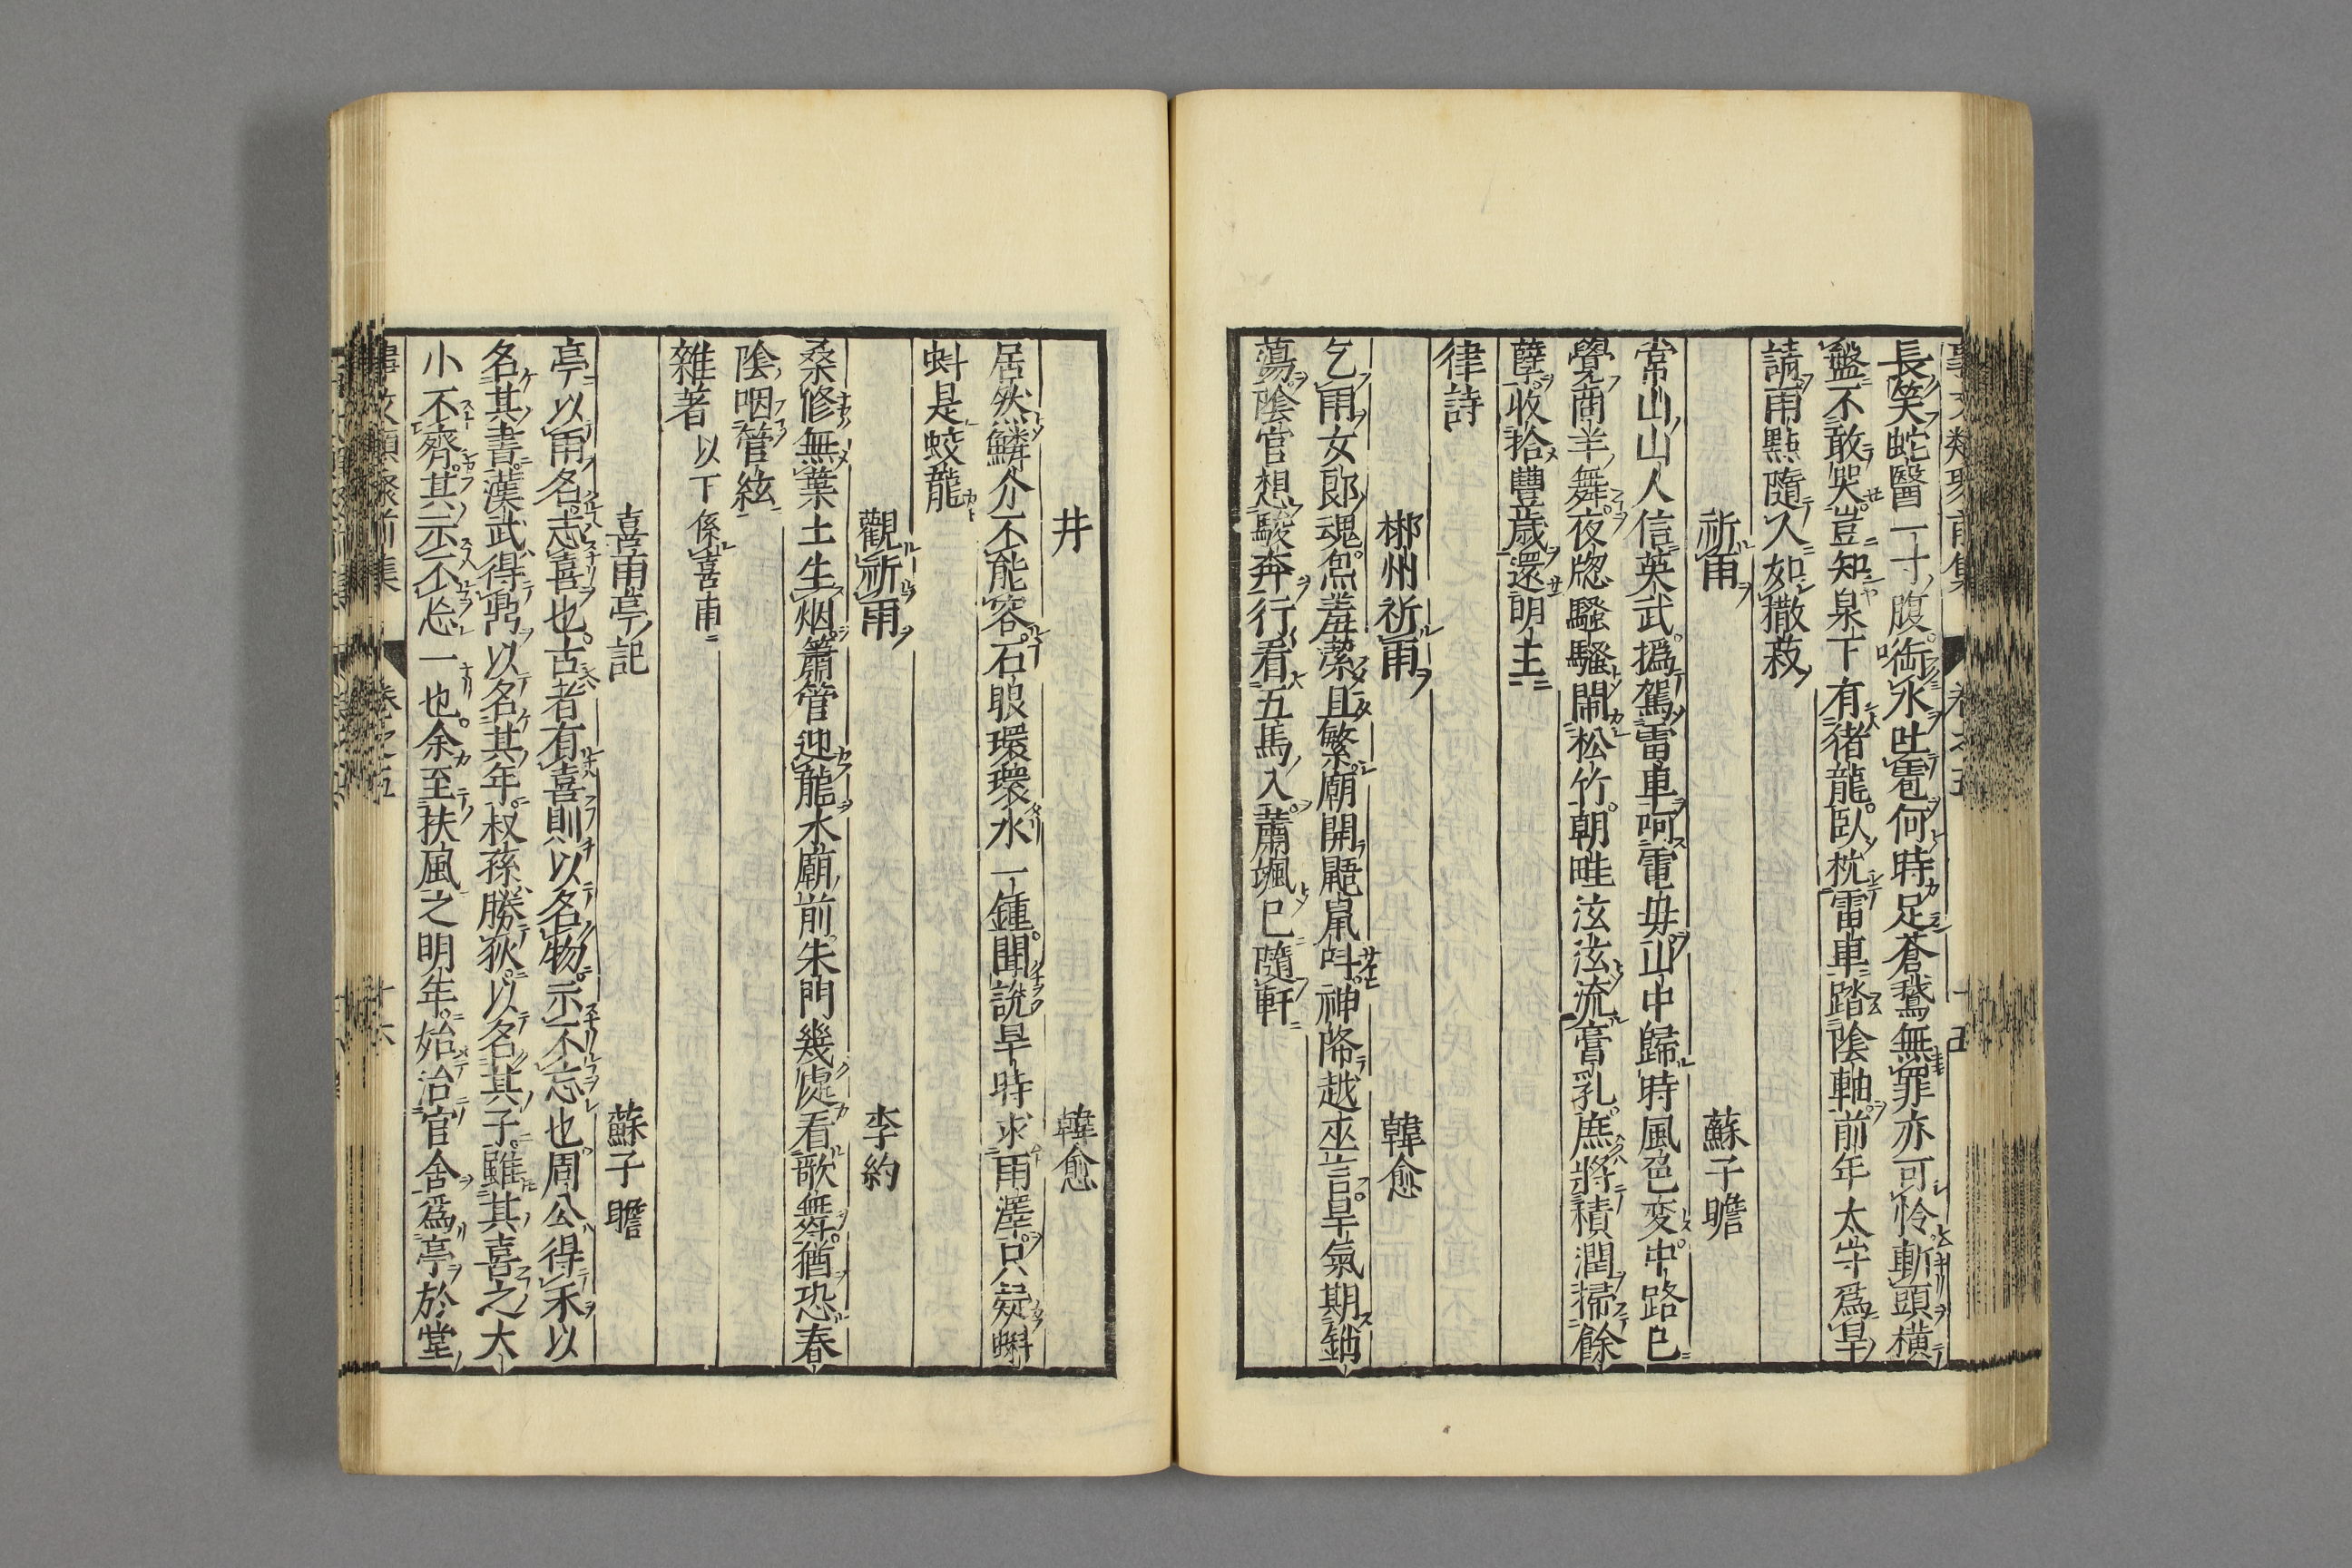 長笑蛇醫一寸腹。銜氷吐雹何時足。蒼鵞無罪亦可怜。斬頭橫
盤不敢哭。豈知泉下有猪龍。臥枕雷車踏陰軸。前年太守爲旱
請雨點隨人如撒菽
祈雨 蘇子瞻
常山山人信英武。撝駕雷車呵電母。山中歸時風色変。中路已
覺商羊舞。夜牕騷騷閙松竹。朝畦泫泫流膏乳。庶將積潤掃餘
孽。收拾豐歲還明主
律詩
郴州祈雨 韓愈
乞雨女郎魂。炰羞潔且繁。廟開鼯鼠呌。神降越巫言。旱氣期銷
蕩。陰官想駿奔。行看五馬入。蕭颯已隨軒
井 韓愈
居然鱗介不能容。石眼環環水一鍾。聞說旱時求雨澤。只疑蝌
蚪是蛟龍
觀祈雨 李約
桑條無葉土生烟。簫管迎龍水廟前。朱門幾處看歌舞。猶恐春
陰咽管絃
雜著 以下係喜雨
喜雨亭記 蘇子瞻
亭以雨名。志喜也。古者有喜則以名物。示不忘也。周公得禾。以
名其書。漢武得鼎。以名其年。叔孫勝狄。以名其子。雖其喜之大
小不齊。其示不忘一也。余至扶風之明年。始治官舍。爲亭於堂
事文類聚前集 卷之五 十六